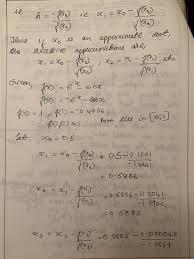 ie h = -f(x₀)/f'(x₀) ie x₁ = x₀ - f(x₀)/f'(x₀)
Thus if x₀ is an approximate root,
the iterative approximations are,
x₁ = x₀ - f(x₀)/f'(x₀) ; x₂ = x₁ - f(x₁)/f'(x₁) etc
Given,
f(x) = e⁻ˣ - sinx
f'(x) = -e⁻ˣ - cosx
f(0) = 1, f(1) = -0.4736
root lies in [0,1]
Let x₀ = 0.5
x₁ = x₀ - f(x₀)/f'(x₀) = 0.5 -
= 0.5856
x₂ = x₁ - f(x₁)/f'(x₁) = 0.5856 -
= 0.5885
x₃ = x₂ - f(x₂)/f'(x₂) = 0.5885 -